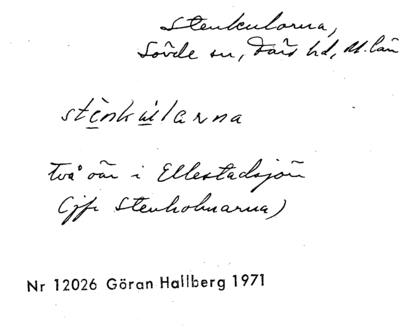 Stenkularna,
Sövde sn, Färs hd, M. län
stènkùlarna
två öar i Ellestadsjön
(jfr Stenholmarna)
Nr 12026 Göran Hallberg 1971